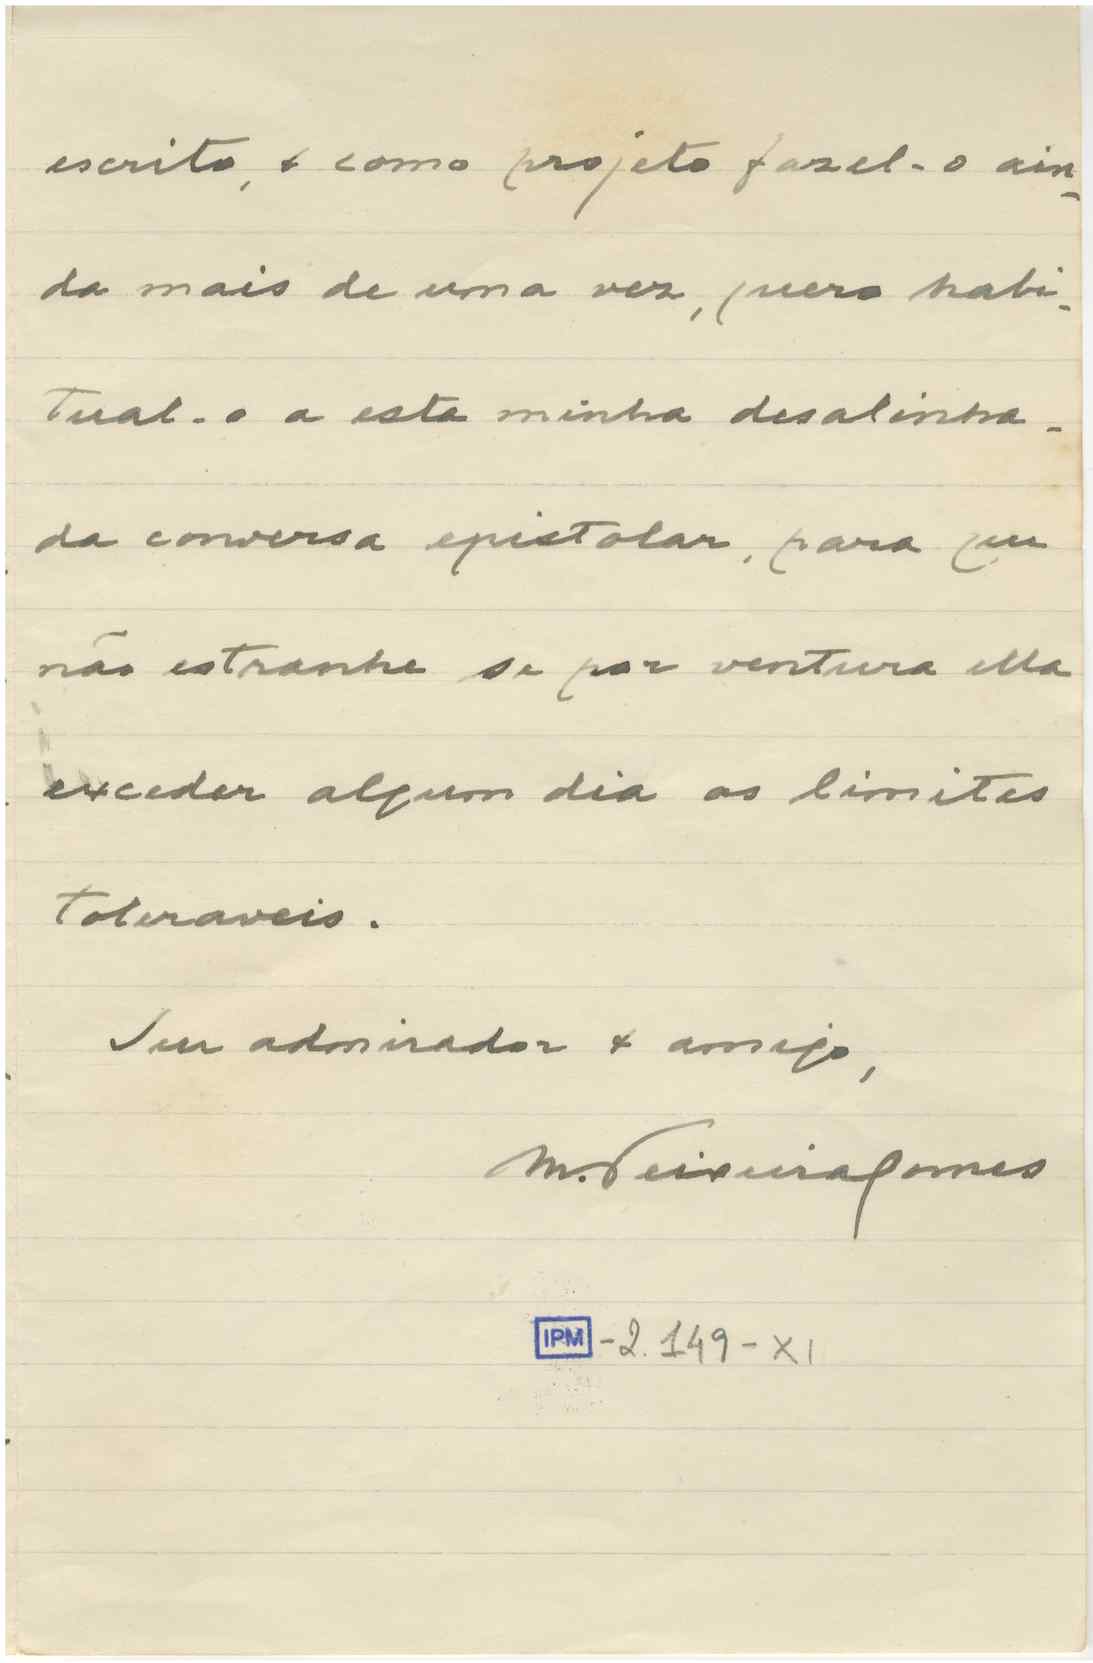 escrito, & como projeto fazel-o ain-
da mais de uma vez, quero habi-
tual-o a esta minha desalinha-
da conversa epistolar, para que
não estranhe se por ventura ella
exceder algum dia os limites
toleraveis.
Seu admirador & amigo,
M. Teixeira Gomes
IPM - 2.149 - XI